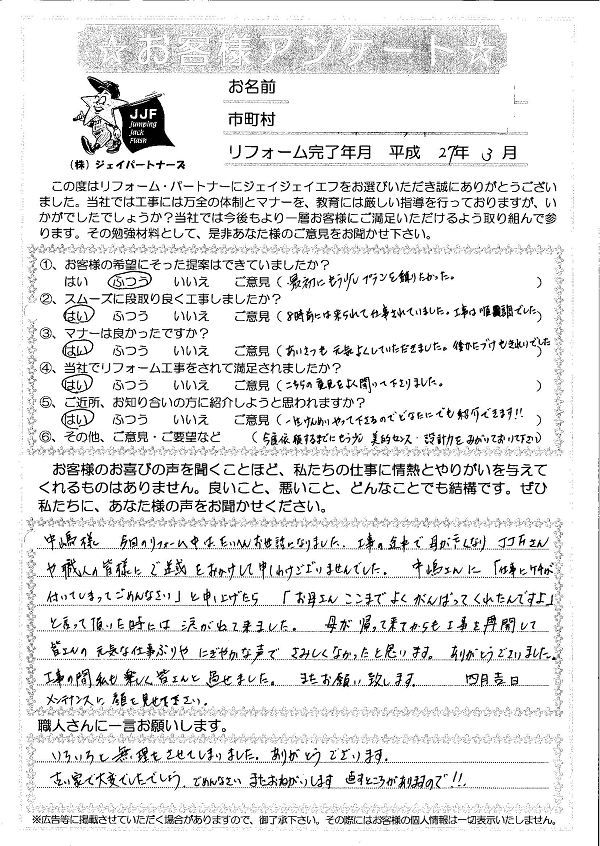 ☆お客様アンケート☆
JJF
Jumping
Jack
Flash
(株)ジェイパートナーズ
お名前
市町村
リフォーム完了年月 平成 27年 3月
この度はリフォーム・パートナーにジェイジェイエフをお選びいただき誠にありがとうござい
ました。当社では工事には万全の体制とマナーを、教育には厳しい指導を行っておりますが、い
かがでしたでしょうか?当社では今後もより一層お客様にご満足いただけるよう取り組んで参
ります。その勉強材料として、是非あなた様のご意見をお聞かせ下さい。
①、お客様の希望にそった提案はできていましたか?
はい ふつう いいえ ご意見(最初にもう少しプランを練りたかった。)
②、スムーズに段取り良く工事しましたか?
はい ふつう いいえ ご意見(8時前には来られて仕事されていました。工事は順調でした)
③、マナーは良かったですか?
はい ふつう いいえ ご意見(あいさつも元気よくしていただきました。後かたづけもきれいでした
④、当社でリフォーム工事をされて満足されましたか?
はい ふつう いいえ ご意見(こちらの意見をよく聞いて下さりました。)
⑤、ご近所、お知り合いの方に紹介しようと思われますか?
はい ふつう いいえ ご意見(一生けんめいやって下さるのでどなたにでも紹介できます!!)
⑥、その他、ご意見・ご要望など (今度依頼するまでにもう少し 美的センス・設計力をみがいておいて下さい)
お客様のお喜びの声を聞くことほど、私たちの仕事に情熱とやりがいを与えて
くれるものはありません。良いこと、悪いこと、どんなことでも結構です。ぜひ
私たちに、あなた様の声をお聞かせください。
中嶋様 今回のリフォーム中はたいへんお世話になりました。工事の途中で母が亡くなり JJFさん
や職人の皆様にご迷惑をおかけして申しわけございませんでした。 中嶋さんに「仕事にケチが
付いてしまってごめんなさい」と申し上げたら 「お母さんここまでよくがんばってくれたんですよ」
と言って頂いた時には涙が出て来ました。 母が帰って来てからも工事を再開して
皆さんの元気な仕事ぶりや にぎやかな声で さみしくなかったと思います。ありがとうございました。
工事の間私も楽しく皆さんと過せました。 またお願い致します。 四月吉日
メンテナンスに顔を見せて下さい。
職人さんに一言お願いします。
いろいろと無理をさせてしまいました。ありがとうございます。
古い家で大変でしたでしょう、ごめんなさい またおねがいします 直すところがありますので!!
※広告等に掲載させていただく場合がありますので、御了承下さい。その際にはお客様の個人情報は一切表示いたしません。